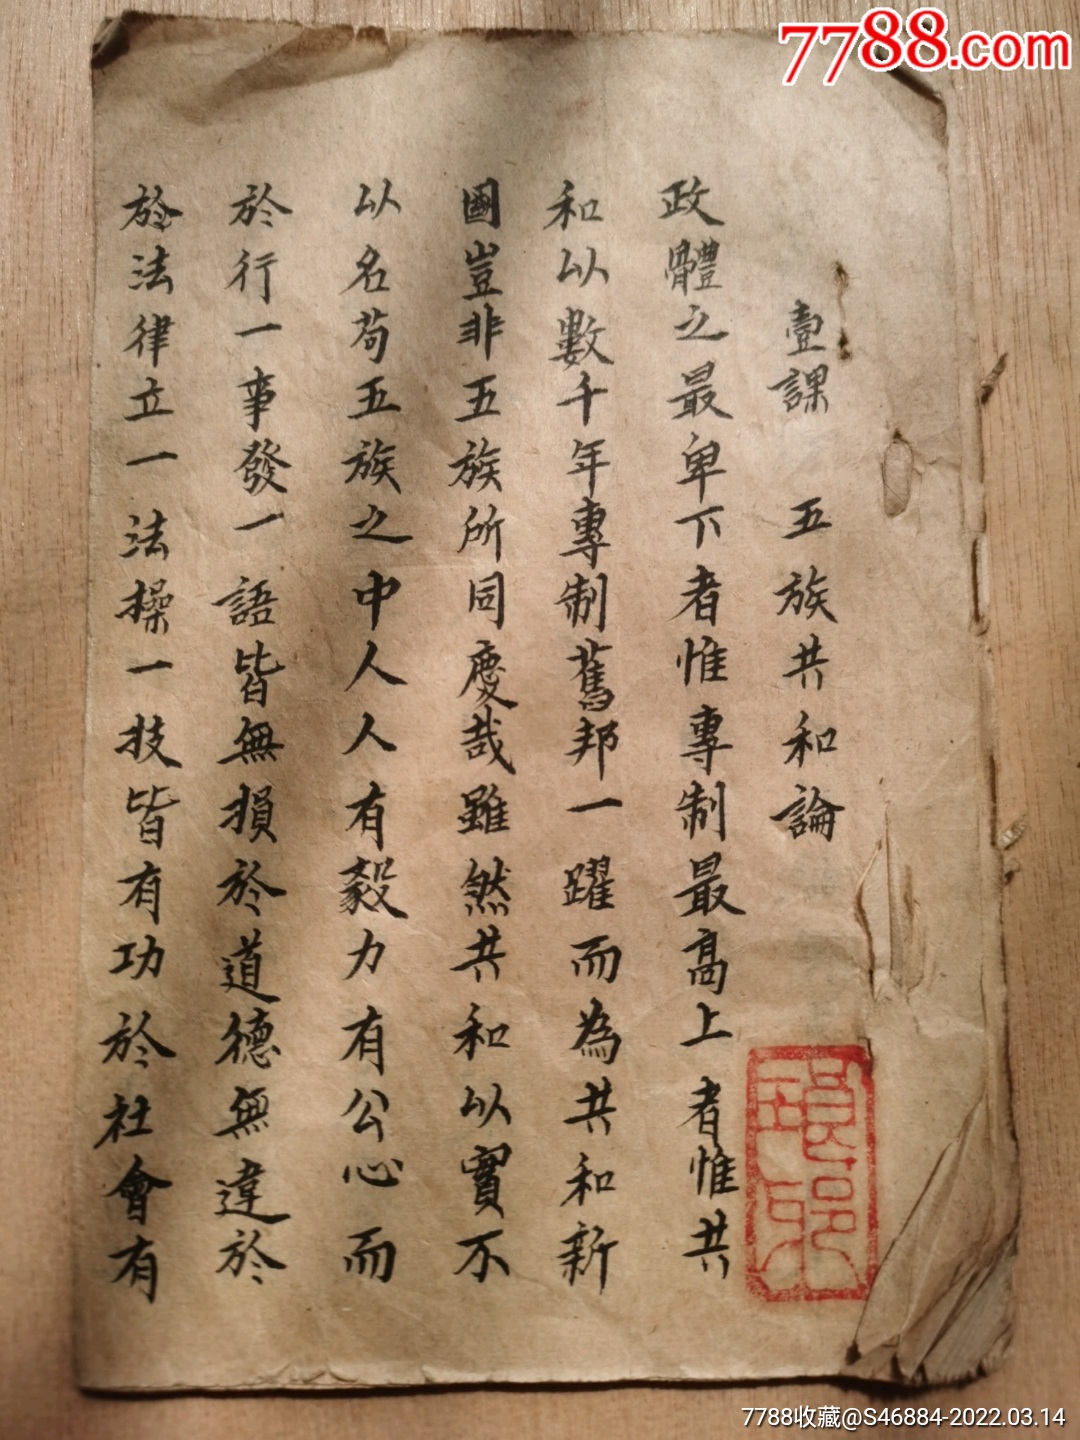 7788.com
壹課 五族共和論
政體之最卑下者惟專制最高上者惟共
和以數千年專制舊邦一躍而為共和新
國豈非五族所同慶哉雖然共和以實不
以名苟五族之中人人有毅力有公心而
於行一事發一語皆無損於道德無違於
於法律立一法操一技皆有功於社會有
7788收藏@S46884-2022.03.14